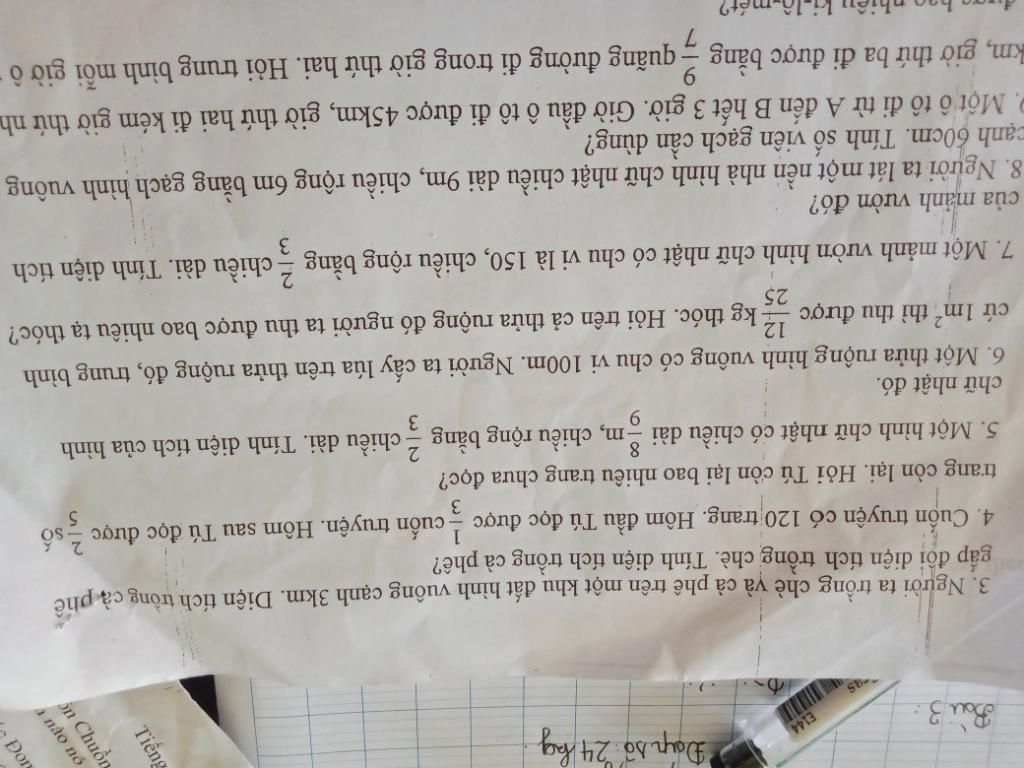 Bài 3:
Đáp số: 24 kg
3. Người ta trồng chè và cà phê trên một khu đất hình vuông cạnh 3km. Diện tích trồng cà phê
gấp đôi diện tích trồng chè. Tính diện tích trồng cà phê?
4. Cuốn truyện có 120 trang. Hôm đầu Tú đọc được 1/3 cuốn truyện. Hôm sau Tú đọc được 2/5 số
trang còn lại. Hỏi Tú còn lại bao nhiêu trang chưa đọc?
5. Một hình chữ nhật có chiều dài 8/9 m, chiều rộng bằng 2/3 chiều dài. Tính diện tích của hình
chữ nhật đó.
6. Một thửa ruộng hình vuông có chu vi 100m. Người ta cấy lúa trên thửa ruộng đó, trung bình
cứ 1m² thì thu được 12/25 kg thóc. Hỏi trên cả thửa ruộng đó người ta thu được bao nhiêu tạ thóc?
7. Một mảnh vườn hình chữ nhật có chu vi là 150, chiều rộng bằng 2/3 chiều dài. Tính diện tích
của mảnh vườn đó?
8. Người ta lát một nền nhà hình chữ nhật chiều dài 9m, chiều rộng 6m bằng gạch hình vuông
cạnh 60cm. Tính số viên gạch cần dùng?
9. Một ô tô đi từ A đến B hết 3 giờ. Giờ đầu ô tô đi được 45km, giờ thứ hai đi kém giờ thứ nh
km, giờ thứ ba đi được bằng 9/7 quãng đường đi trong giờ thứ hai. Hỏi trung bình mỗi giờ ô
được bao nhiêu ki-lô-mét?
E144
Tiếng
ôn Chuồn
n nào nở